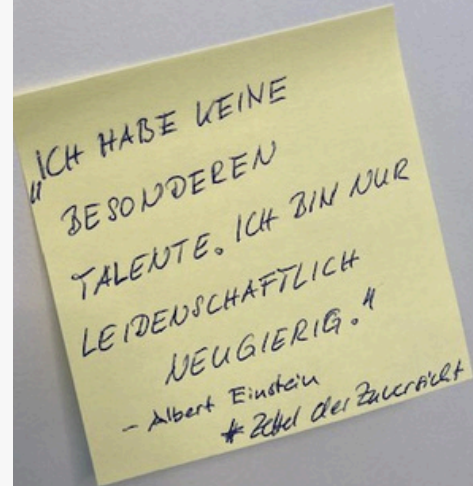 „ICH HABE KEINE
BESONDEREN
TALENTE. ICH BIN NUR
LEIDENSCHAFTLICH
NEUGIERIG."
- Albert Einstein
# Zettel der Zuversicht